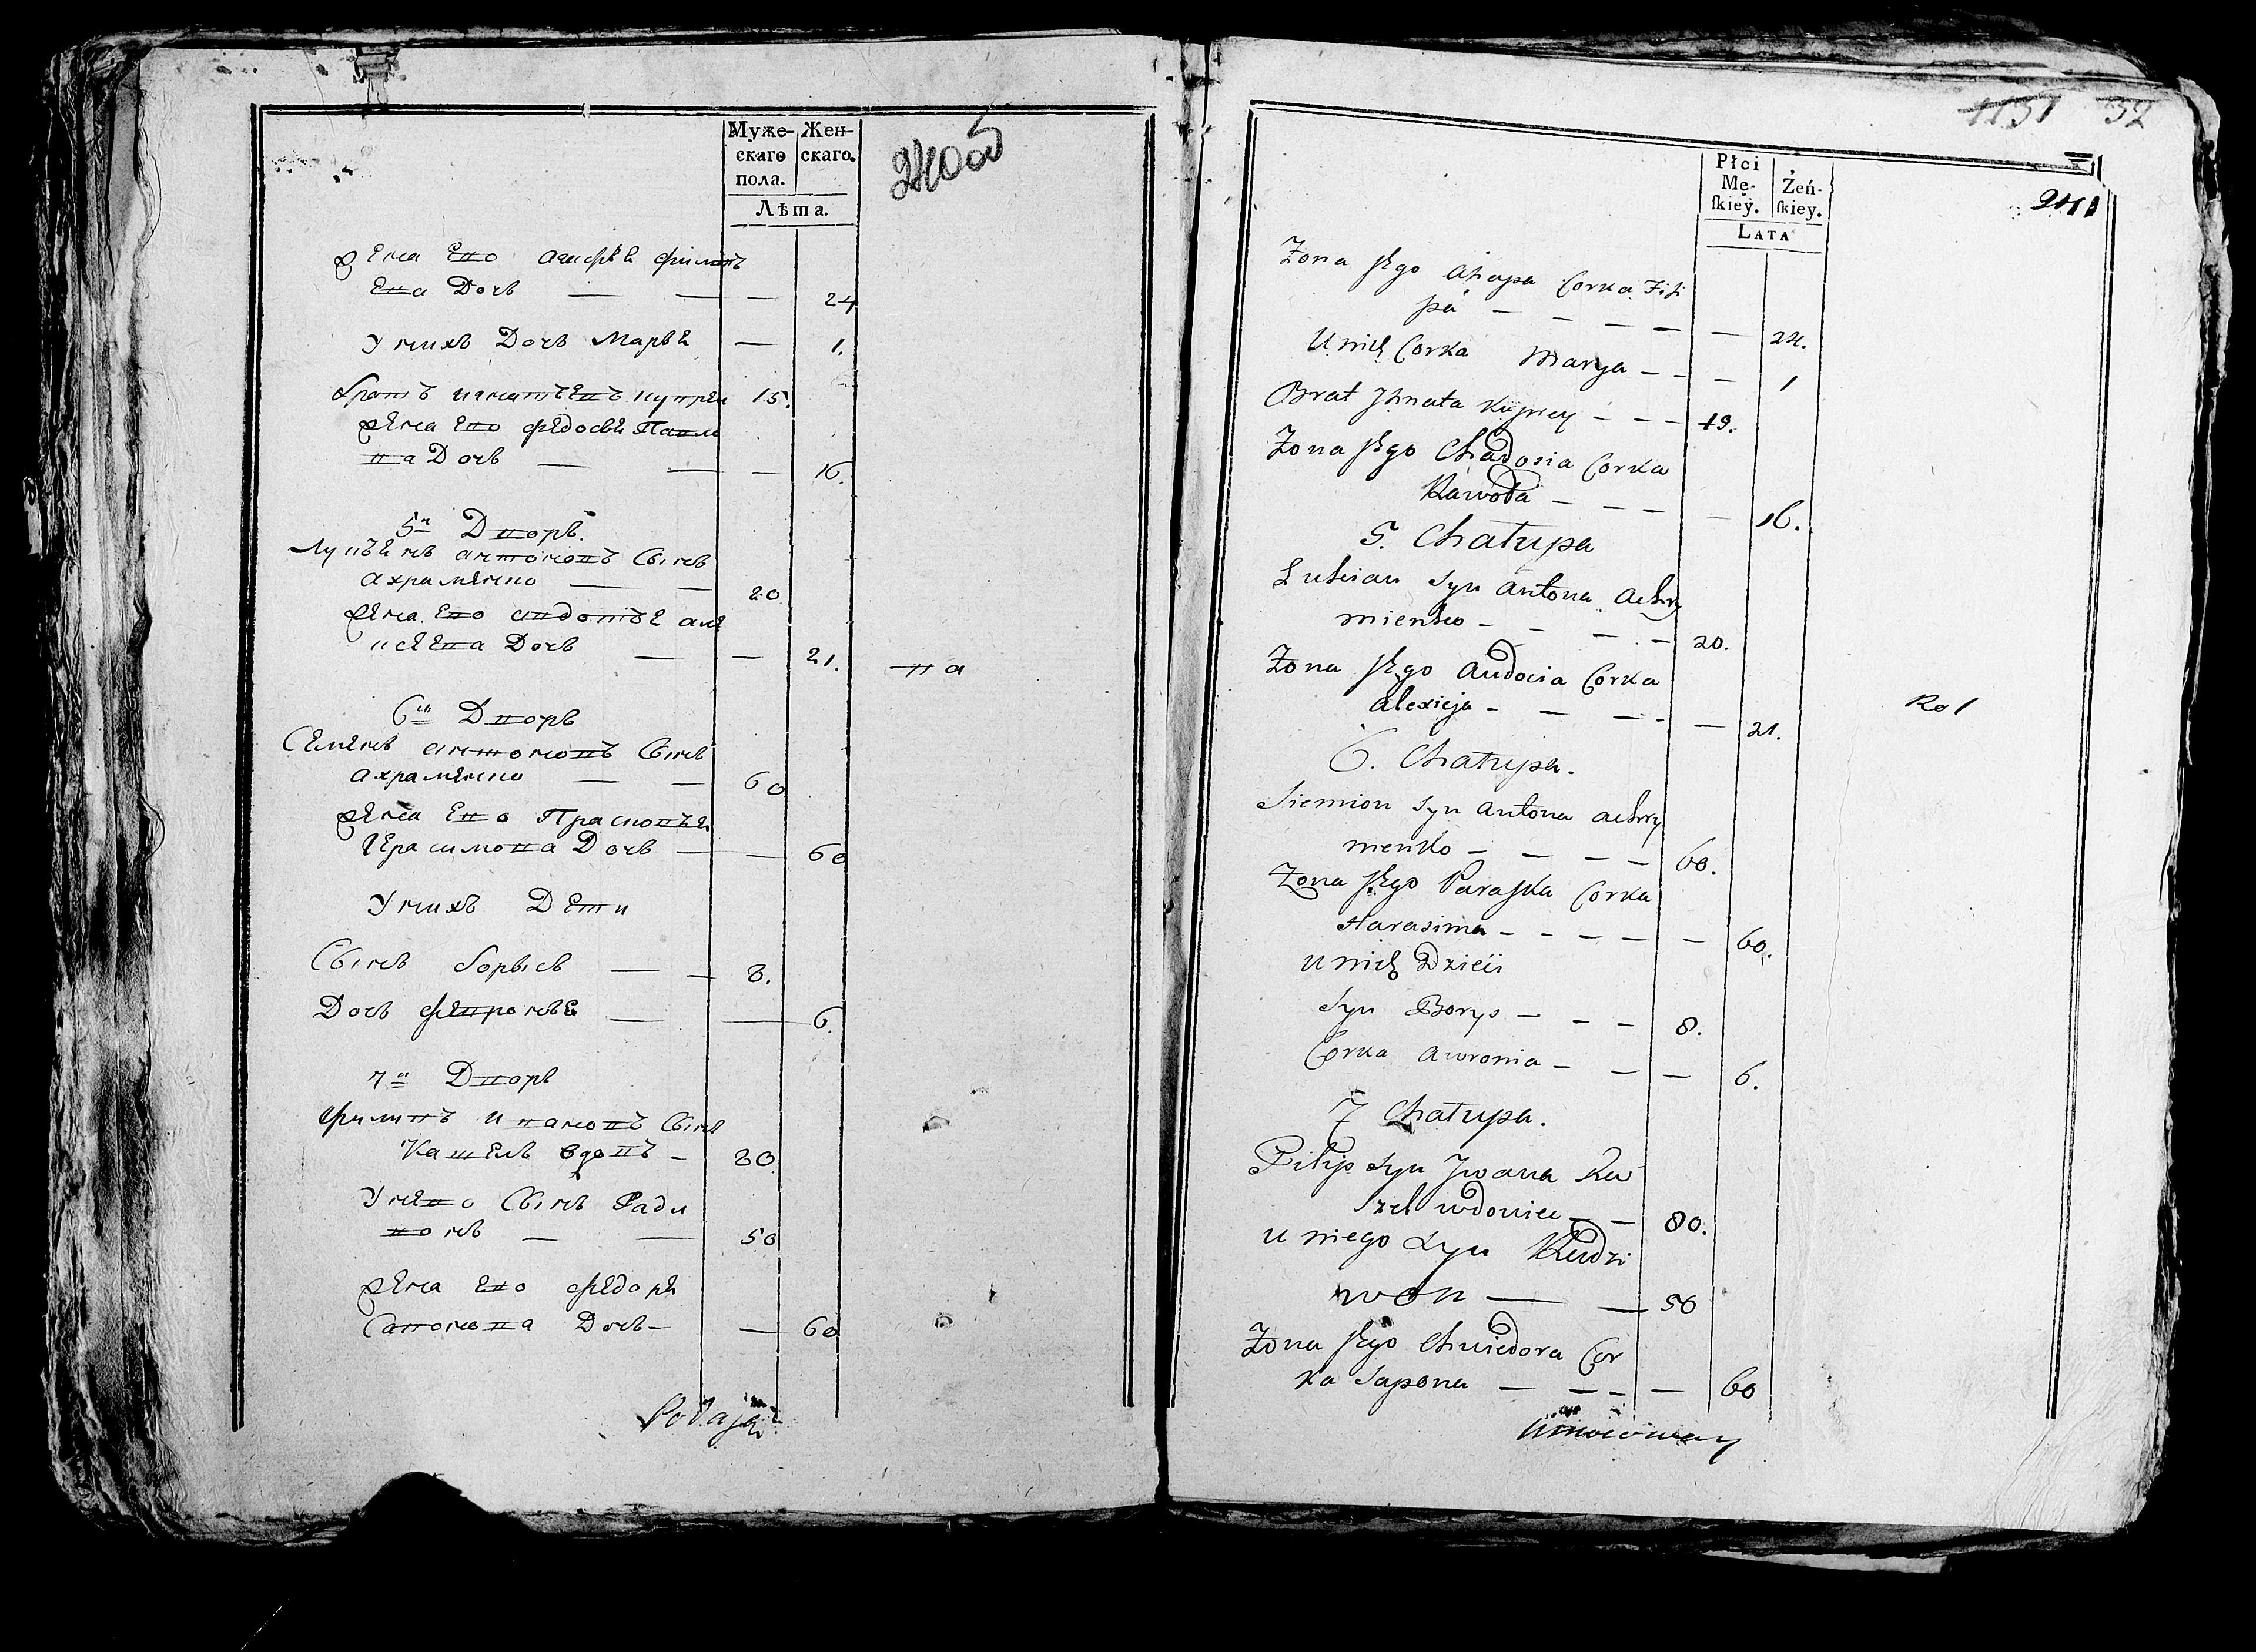 Муже-
скаго
пола.
Жен-
скаго.
Лѣта.
Жена Его агафья филипъ
Ева Дочь — — — 24
У нихъ Дочь Марья — 1.
братъ игнатьевъ купрей 15.
Жена Его федосья Павло
ва Дочь — — — 16.
5й Дворъ.
Лукьянъ антоновъ Сынъ
ахраменко — — 20
Жена Его авдотья але
ксѣева Дочь — — 21.
6й Дворъ
Семенъ антоновъ Сынъ
ахраменко — — 60
Жена Его Прасковья
Герасимова Дочь — — 60
У нихъ Дети
Сынъ борысъ — — 8.
Дочь февронья — — 6.
7й Дворъ
филипъ ивановъ Сынъ
Кашель вдовъ — 80
У него Сынъ Роди
вонъ — — 50
Жена Его федоря
Сапонова Дочь — — 60
ва
Płci
Mę-
ſkiey.
Żeń-
ſkiey.
LATA
1131 32
241
Żona Jego ahapa Corka Fili
pa — — — — — 24.
U nich Corka Marya — — — 1
Brat Jhnata Kuprey — — — 19.
Żona Jego Chadosia Corka
Pawoła — — — — 16.
5. Chałupa
Lukian Syn antona achry
mienko — — — — 20.
Żona Jego audocia Corka
alexieja — — — — — 21.
6. Chałupa.
Siemion Syn antona achry
menko — — — — 60.
Żona Jego Paraſka Corka
Harasima — — — — — 60.
u nich Dzieci
Syn Borys — — — 8.
Corka awronia — — — 6.
7 Chałupa.
Pilip Syn Jwana Ka
szel wdowiec — — 80.
u niego Syn Radzi
won — — 50
Żona Jego Chwiedora Cor
ka Sapona — — — — 60